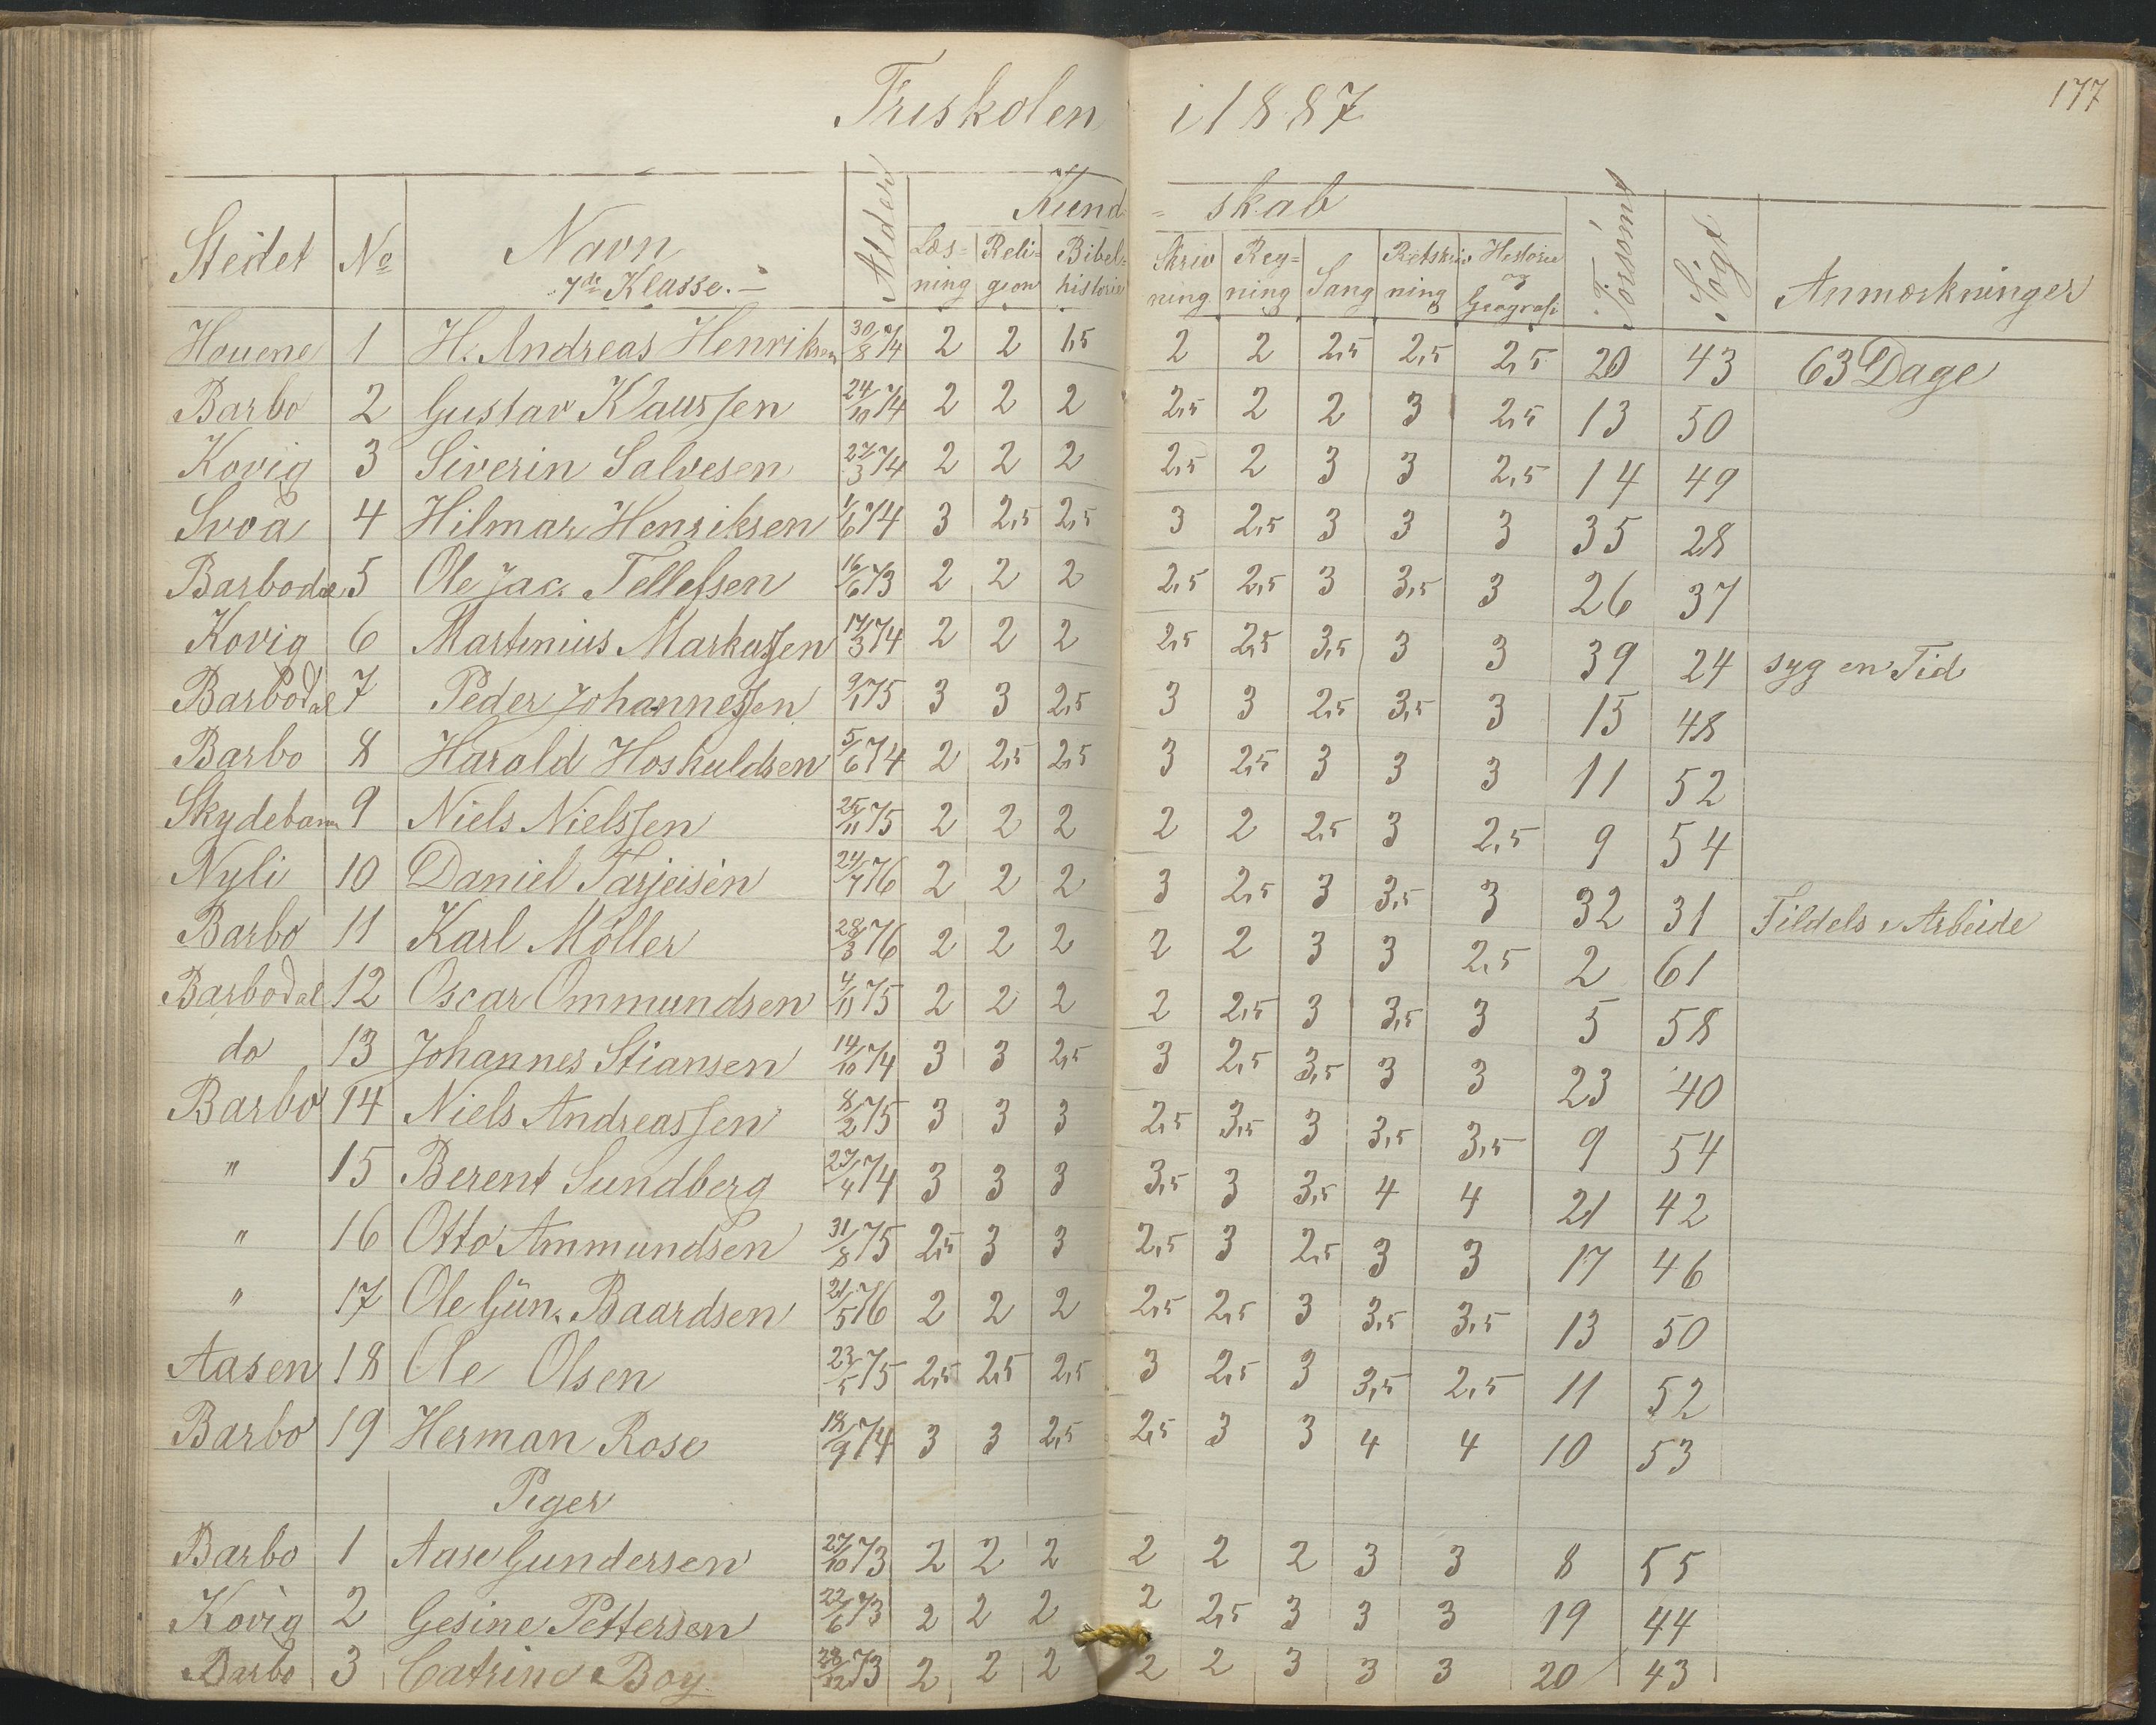 Friskolen i 1887
177
Stedet No Navn Alder Kund- skab Forsömt Sögt Anmærkninger
7de Klasse.- Læs-ning Reli-gion Bibel-historie Skriv ning Reg-ning Sang Retskriv ning Historie og Geografi
Houene 1 H. Andreas Henriksen 30/8 74 2 2 1,5 2 2 2,5 2,5 2,5 20 43 63 Dage
Barbo 2 Gustav Klaussen 24/10 74 2 2 2 2,5 2 2 3 2,5 13 50
Kovig 3 Siverin Salvesen 27/3 74 2 2 2 2,5 2 3 3 2,5 14 49
Svoa 4 Hilmar Henriksen 1/6 74 3 2,5 2,5 3 2,5 3 3 3 35 28
Barbodal 5 Ole Jac. Tellefsen 16/6 73 2 2 2 2,5 2,5 3 3,5 3 26 37
Kovig 6 Martinius Markussen 17/3 74 2 2 2 2,5 2,5 3,5 3 3 39 24 syg en Tid
Barbodal 7 Peder Johannessen 9/1 75 3 3 2,5 3 3 2,5 3,5 3 15 48
Barbo 8 Harald Hoskuldsen 5/6 74 2 2,5 2,5 3 2,5 3 3 3 11 52
Skydebann 9 Niels Nielssen 25/11 75 2 2 2 2 2 2,5 3 2,5 9 54
Nyli 10 Daniel Tarjeisen 24/7 76 2 2 2 3 2,5 3 3,5 3 32 31 Tildels i Arbeide
Barbo 11 Karl Möller 28/3 76 2 2 2 2 2 3 3 2,5 2 61
Barbodal 12 Oscar Ommundsen 4/11 75 2 2 2 2 2,5 3 3,5 3 5 58
do 13 Johannes Stiansen 14/10 74 3 3 2,5 3 2,5 3,5 3 3 23 40
Barbo 14 Niels Andreassen 8/2 75 3 3 3 2,5 3,5 3 3,5 3,5 9 54
" 15 Berent Sundberg 27/4 74 3 3 3 3,5 3 3,5 4 4 21 42
" 16 Otto Ammundsen 31/8 75 2,5 3 3 2,5 3 2,5 3 3 17 46
" 17 Ole Gün. Baardsen 21/5 76 2 2 2 2,5 2,5 3 3,5 3,5 13 50
Aasen 18 Ole Olsen 23/5 75 2,5 2,5 2,5 3 2,5 3 3,5 2,5 11 52
Barbo 19 Herman Rose 18/9 74 3 3 2,5 2,5 3 3 4 4 10 53
Piger
Barbo 1 Aase Gundersen 27/10 73 2 2 2 2 2 2 3 3 8 55
Kovig 2 Gesine Pettersen 22/6 73 2 2 2 2 2,5 3 3 3 19 44
Barbo 3 Catrine Boy 28/12 73 2 2 2 2 2 3 3 3 20 43